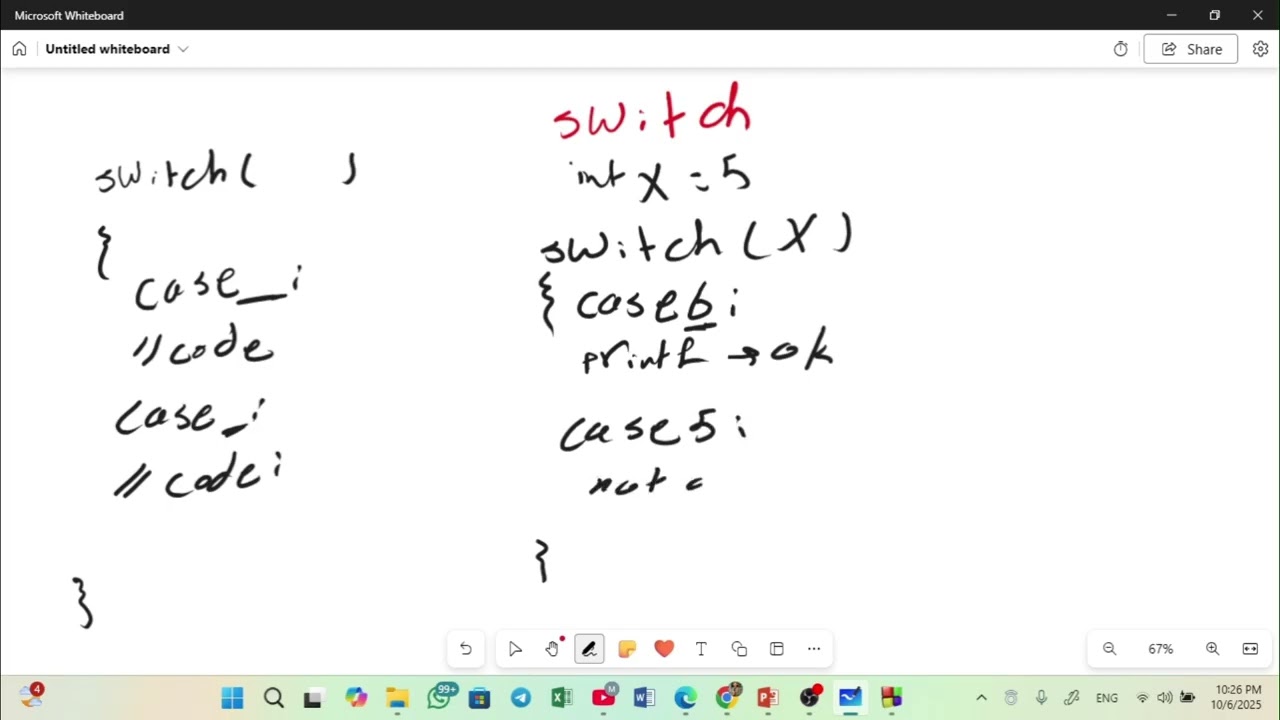 Microsoft Whiteboard
Untitled whiteboard
Share
switch
switch( )
{
case_:
//code
case_:
// code:
}
int X = 5
switch(X)
{ case6:
printf → ok
case5:
not o
}
67%
4
99+
M
ENG
10:26 PM
10/6/2025